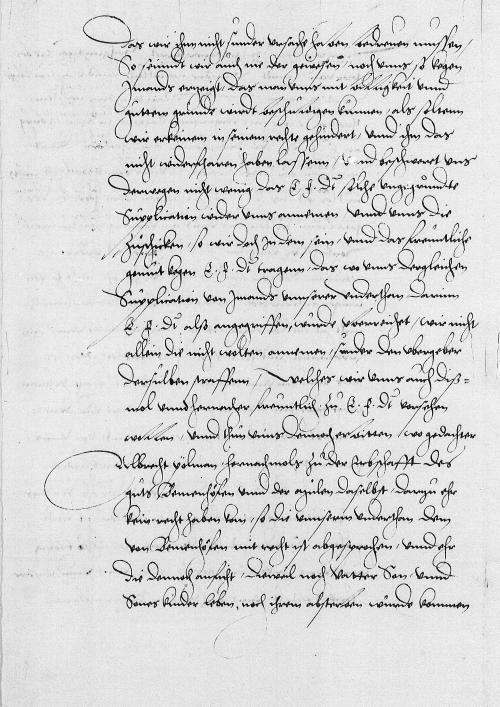 das wir ihm nicht sunder ursache haben bedreuen mussen /
So seindt wir auch nie der gewesen / noch uns / so kegen
Jmands ertzeigt, das man uns mit billigkeit unnd
guttem grunde wirdt beschuldigen kunnen / als soltenn
wir erkeinem in seinem rechte gehindert / unnd ihm das
nicht widerfharen haben lassenn / Und beschwert uns
derwegen nicht wenig das E. f. dt. solche ungegrundte
Supplication wider uns annemen unnd uns die
zuschicken, so wir doch in dem sein, unnd das freuntliche
gemut kegen E. f. dt. tragenn, das wo uns dergleichen
Supplication von Jmands unserer underthan darinn
E. f. dt. also angegriffen, wurde uberreichet / wir nicht
allein die nicht wolten annemen, sunder den ubergeber
derselben straffenn / welches wir uns auch diß=
mol unnd hernocher freuntlich zu E. f. dt. versehen
wollen, unnd thun uns dennoch erbitten / wo gedachter
Albrecht pölman hernochmols zu der Erbschafft des
guts Bemenhöfen unnd der mulen daselbst, dartzu ehr
kein recht haben kan, so die unserm underthan dem
von Bemenhöfen mit recht ist abgesprochen, unnd ehr
die dennoch ansicht, dieweil noch Vatter Son unnd
Sones kinder leben, noch ihrem absterben wurde kommen